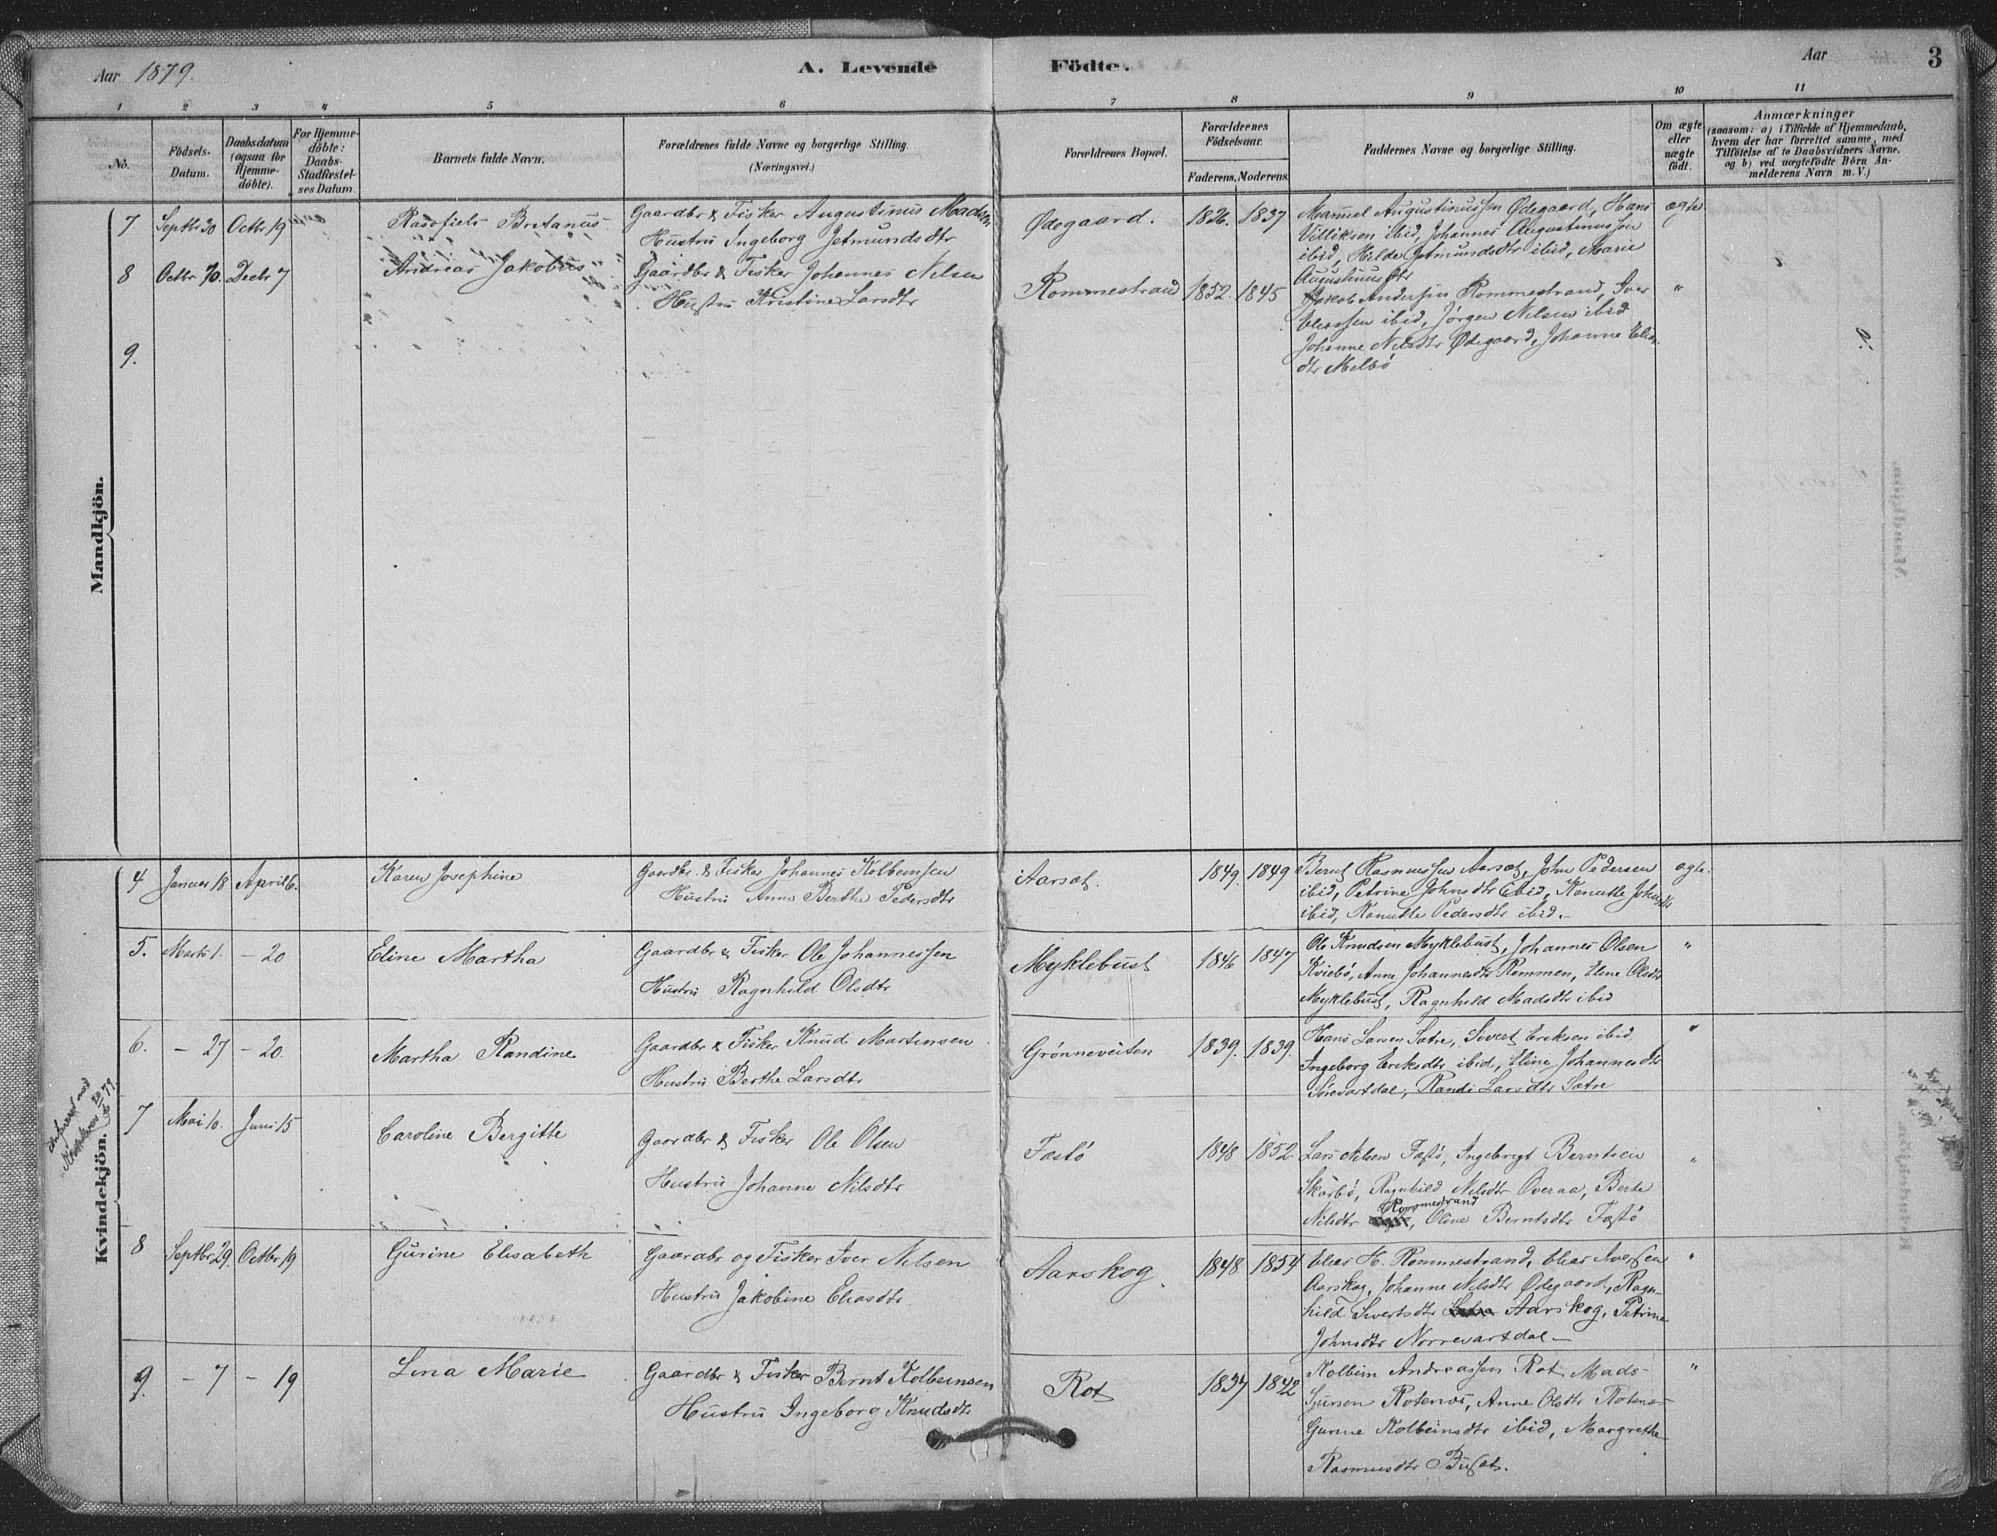 Aar 1879. A. Levende Födte. Aar 3
1 2 3 4 5 6 7 8 9 10 11
No. Födsels-Datum. Daabsdatum (ogsaa for Hjemme-döbte). For Hjemme-döbte: Daabs-Stadfæstel-ses Datum. Barnets fulde Navn. Forældrenes fulde Navne og borgerlige Stilling. (Næringsvei.) Forældrenes Bopæl. Forældrenes Födselsaar. Faderens. Moderens. Faddernes Navne og borgerlige Stilling. Om ægte eller uægte födt. Anmærkninger (saasom: a) i Tilfælde af Hjemmedaab, hvem der har forrettet samme, med Tilföielse af to Daabsvidners Navne, og b) ved uægtefödte Börn An-melderens Navn m. V.)
Mandkjön.
7 Septbr 30 Octbr 19 Bretanus Gaardbr & Fisker Augustinus Madsen Ødegaard. 1826. 1837 Manuel Augustinussen Ødegaard, Hans ægte
Hustru Ingeborg Jetmundsdtr Villiksen ibid, Johannes Augustinussen
ibid, Hilde Jetmundsdtr ibid, Marie
Augustinusdtr
8 Octbr 10. Decbr 7 Andreas Jakobus Gaardbr & Fisker Johannes Nilsen Rommestrand 1852. 1845 Jakob Andersen Rommestrand, Iver "
Hustru Kristine Larsdtr Eliassen ibid, Jørgen Nilsen ibid
9. Johanne Nilsdtr Ødegaard, Johanne Elias
dtr Melbö
Kvindekjön.
4 Januar 18 April 6. Karen Josephine Gaardbr. & Fisker Johannes Kolbeinsen Aarsæt. 1849. 1849 Bernt Rasmussen Aarsæt, John Pedersen ægte.
Hustru Anne Berthe Pedersdtr ibid, Petrine Johnsdtr ibid, Kanutte Johnsdtr
ibid, Kanutte Pedersdtr ibid.
5. Marts 1. - 20 Eline Martha Gaardbr & Fisker Ole Johannessen Myklebust 1846 1847 Ole Knudsen Myklebust, Johannes Olsen "
Hustru Ragnhild Olsdtr Kviebö, Anne Johannesdtr Remmen, Eline Olsdtr
Myklebust, Ragnhild Madsdtr ibid
6. - 27 - 20. Martha Randine Gaardbr & Fisker Knud Martinsen Grönneveiten 1839. 1839. Hans Larsen Sætre, Sivert Eriksen ibid "
Hustru Berthe Larsdtr Ingeborg Eriksdtr ibid, Eline Johannesdtr
Sörevartdal, Randi Larsdtr Sætre
7 Mai 10. Juni 15 Caroline Bergitte Gaardbr & Fisker Ole Olsen Fastö 1848 1852 Lars Nilsen Fastö, Ingebrigt Berntsen "
Hustru Johanne Nilsdtr Skarbö, Ragnhild Nilsdtr Overaa, Berte
Nilsdtr Rommestrand, Oline Berntsdtr Fastö
8 Septbr 29. Octbr 19 Gurine Elisabeth Gaardbr og Fisker Iver Nilsen Aarskog. 1848. 1854 Elias H. Rommestrand, Elias Iversen "
Hustru Jakobine Eliasdtr Aarskog, Johanne Nilsdtr Ødegaard, Ragn-
hild Sivertsdtr Aarskog, Petrine
Johnsdtr Norrevartdal
9. - 7 - 19 Lina Marie Gaardbr & Fisker Bernt Kolbeinsen Rot 1837 1842 Kolbein Andreassen Rot Mads "
Hustru Ingeborg Knudsdtr Sjursen Rotenæs, Anne Olsdtr Rotenæs
Gurine Kolbeinsdtr ibid, Margrethe
Rasmusdtr